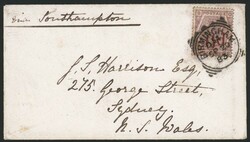 via Southampton
J. S. Harrison Esq,
275. George Street,
Sydney.
N. S. Wales.